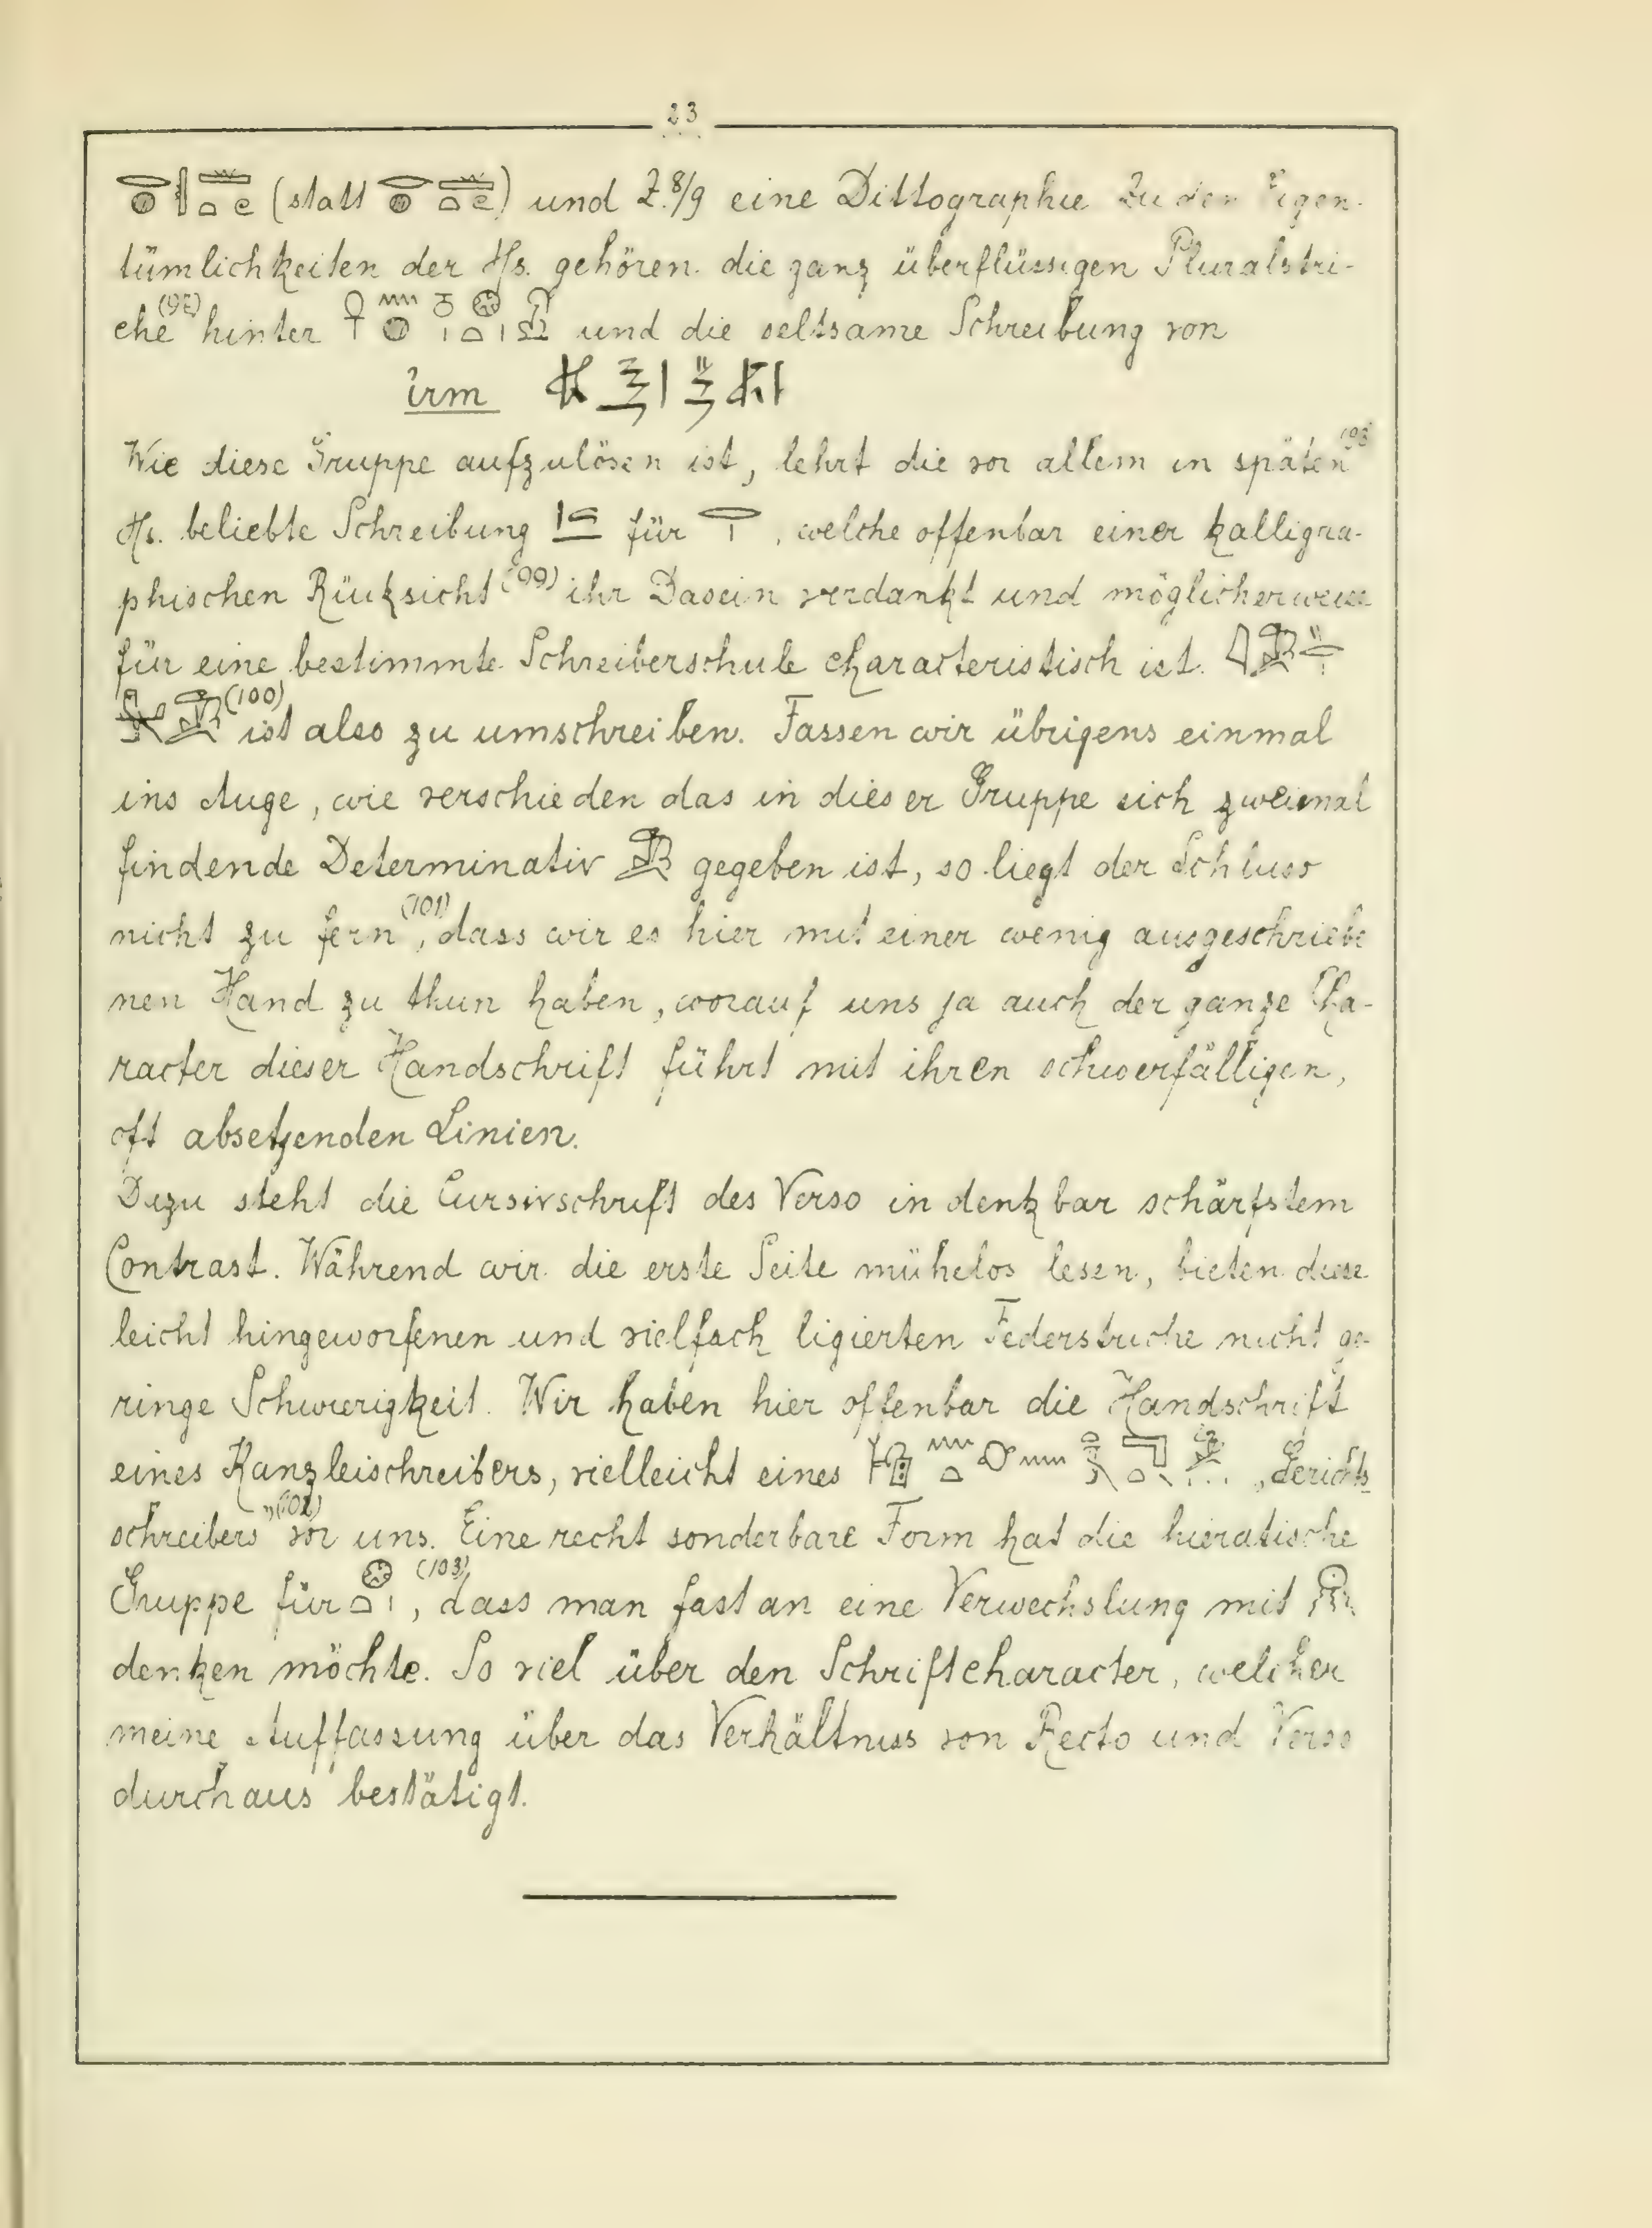 23
(statt ) und Z. 8/9 eine Dittographie Zu den Eigen-
tümlichkeiten der Hs. gehören die ganz überflüssigen Pluralstri-
che hinter und die seltsame Schreibung von
irm
Wie diese Gruppe aufzulösen ist, lehrt die vor allem in späten
Hs. beliebte Schreibung für , welche offenbar einer kalligra-
phischen Rücksicht (99) ihr Dasein verdankt und möglicherweise
für eine bestimmte Schreiberschule characteristisch ist.
(100) ist also zu umschreiben. Fassen wir übrigens einmal
ins Auge, wie verschieden das in dieser Gruppe sich zweimal
findende Determinativ gegeben ist, so liegt der Schluss
nicht zu fern (101), dass wir es hier mit einer wenig ausgeschriebe
nen Hand zu thun haben, worauf uns ja auch der ganze Cha-
racter dieser Handschrift führt mit ihren schwerfälligen,
oft absetzenden Linien.
Dazu steht die Cursivschrift des Verso in denkbar schärfstem
Contrast. Während wir die erste Seite mühelos lesen, bieten diese
leicht hingeworfenen und vielfach ligierten Federstriche nicht ge-
ringe Schwierigkeit. Wir haben hier offenbar die Handschrift
eines Kanzleischreibers, vielleicht eines „Gerichts
schreibers" (102) vor uns. Eine recht sonderbare Form hat die hieratische
Gruppe für (103), dass man fast an eine Verwechslung mit
denken möchte. So viel über den Schriftcharacter, welcher
meine Auffassung über das Verhältniss von Recto und Verso
durchaus bestätigt.